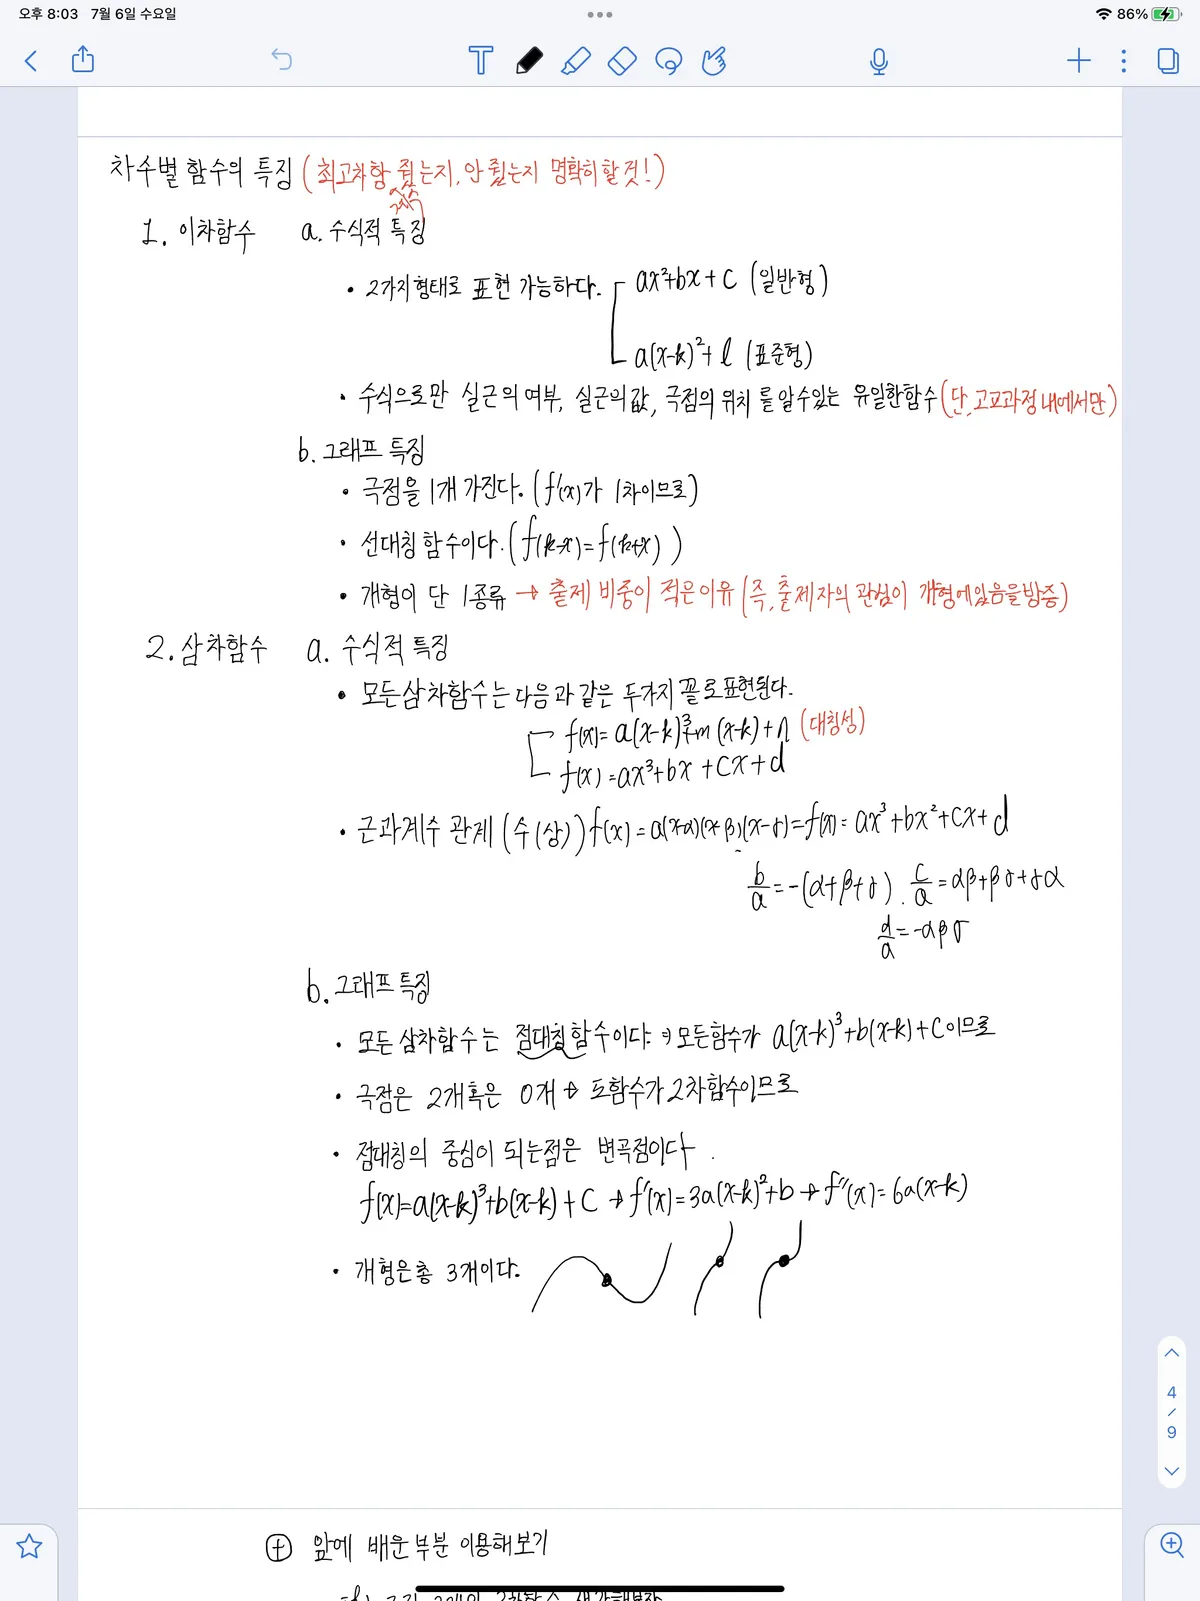 오후 8:03 7월 6일 수요일 86%
차수별 함수의 특징 (최고차항 줬는지, 안 줬는지 명확히 할 것!)
계수
1. 이차함수 a. 수식적 특징
• 2가지 형태로 표현 가능하다. ax²+bx+c (일반형)
a(x-k)²+l (표준형)
• 수식으로만 실근의 여부, 실근의 값, 극점의 위치를 알 수 있는 유일한 함수 (단, 고교과정 내에서만)
b. 그래프 특징
• 극점을 1개 가진다. (f'(x)가 1차이므로)
• 선대칭 함수이다. (f(k-x)=f(k+x))
• 개형이 단 1종류 → 출제 비중이 적은 이유 (즉, 출제자의 관심이 개형에 있음을 방증)
2. 삼차함수 a. 수식적 특징
• 모든 삼차함수는 다음과 같은 두가지 꼴로 표현된다.
f(x)=a(x-k)³+m(x-k)+n (대칭성)
f(x)=ax³+bx+cx+d
• 근과 계수 관계 (수(상)) f(x)=a(x-α)(x-β)(x-γ)=f(x)=ax³+bx²+cx+d
b/a=-(α+β+γ). c/a=αβ+βγ+γα
d/a=-αβγ
b. 그래프 특징
• 모든 삼차함수는 점대칭함수이다. → 모든함수가 a(x-k)³+b(x-k)+c이므로
• 극점은 2개 혹은 0개 → 도함수가 2차함수이므로
• 점대칭의 중심이 되는점은 변곡점이다.
f(x)=a(x-k)³+b(x-k)+c → f'(x)=3a(x-k)²+b → f''(x)=6a(x-k)
• 개형은 총 3개이다.
4
/
9
⊕ 앞에 배운 부분 이용해보기